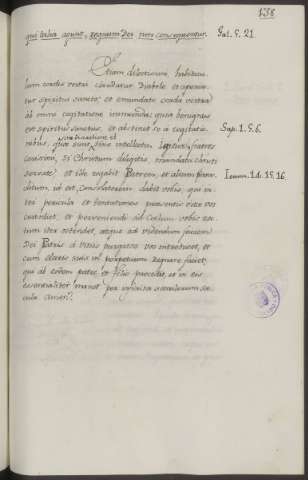 158
qui talia agunt, regnum Dei non consequentur. Gal. 5. 21.
Etiam dilectissimi habitaculum cordis vestri claudatur Diabolo et aperiatur spiritui sancto, et emundate corda vestra
ab omni cogitatione immunda; quia benignus
est spiritus sanctus, et abstinet se a cogitatio- Sap. 1. 5. 6.
nibus, quae sunt sine intellectu. Igitur fratres
carissimi, si Christum diligitis, mandata Christi
servate; et ille rogabit Patrem, et alium Para- Ioann. 14. 15. 16
clitum, id est, Consolatorem dabit vobis, qui in-
ter pericula et tentationes praesentis vitae vos
custodiet, et perveniendi ad Caelum vobis aditum
iter ostendet, atque ad videndam faciem
Dei Patris a vitiis purgatos vos introducet, et
cum electis suis in perpetuum regnare faciet,
qui ab eodem patre, et filio procedit, et in eis
essentialiter manet per infinita saeculorum sae-
cula. amen.